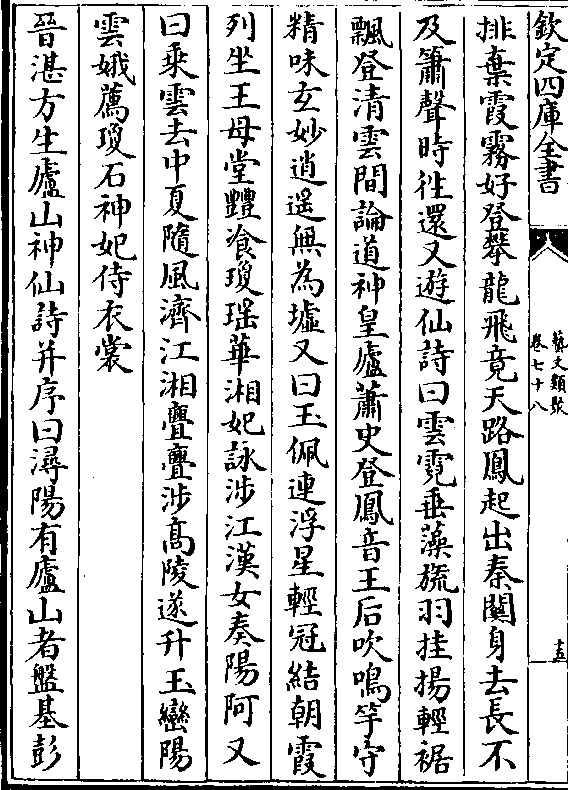 欽定四庫全書
藝文類聚
卷七十八
十五
排棄霞霧好登攀龍飛竟天路鳳起出秦關身去長不
及簫聲時徃還又遊仙詩曰雲霓垂藻旒羽挂揚輕裾
飄登清雲間論道神皇廬蕭史登鳳音王后吹鳴竽守
精味玄妙逍遥無為墟又曰玉佩連浮星輕冠結朝霞
列坐王母堂豔飡瓊瑶華湘妃詠涉江漢女奏陽阿又
曰乘雲去中夏隨風濟江湘亹亹涉髙陵遂升玉巒陽
雲娥薦瓊石神妃侍衣裳
晉湛方生廬山神仙詩并序曰潯陽有廬山者盤基彭